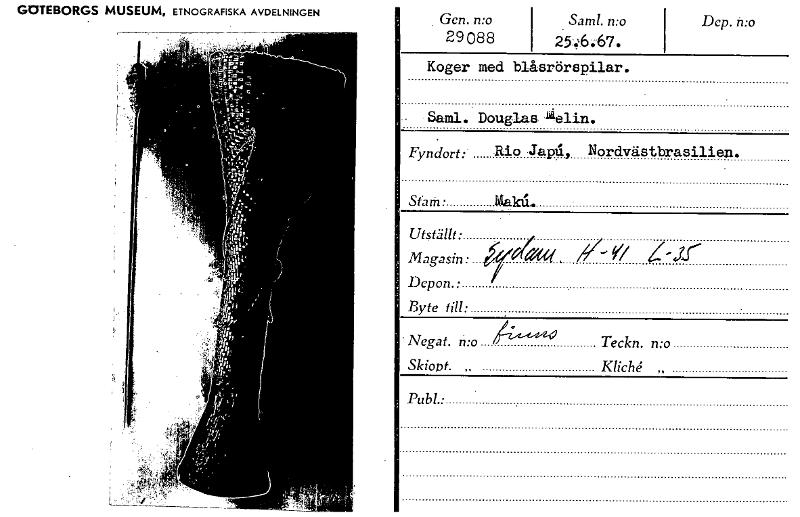 GÖTEBORGS MUSEUM, ETNOGRAFISKA AVDELNINGEN
Gen. n:o Saml. n:o Dep. n:o
29088 25.6.67.
Koger med blåsrörspilar.
Saml. Douglas Melin.
Fyndort: Rio Japú, Nordvästbrasilien.
Stam: Makú.
Utställt:
Magasin: Sydam. H-41 L-35
Depon.:
Byte till:
Negat. n:o finns Teckn. n:o
Skiopt. „ Kliché „
Publ.: